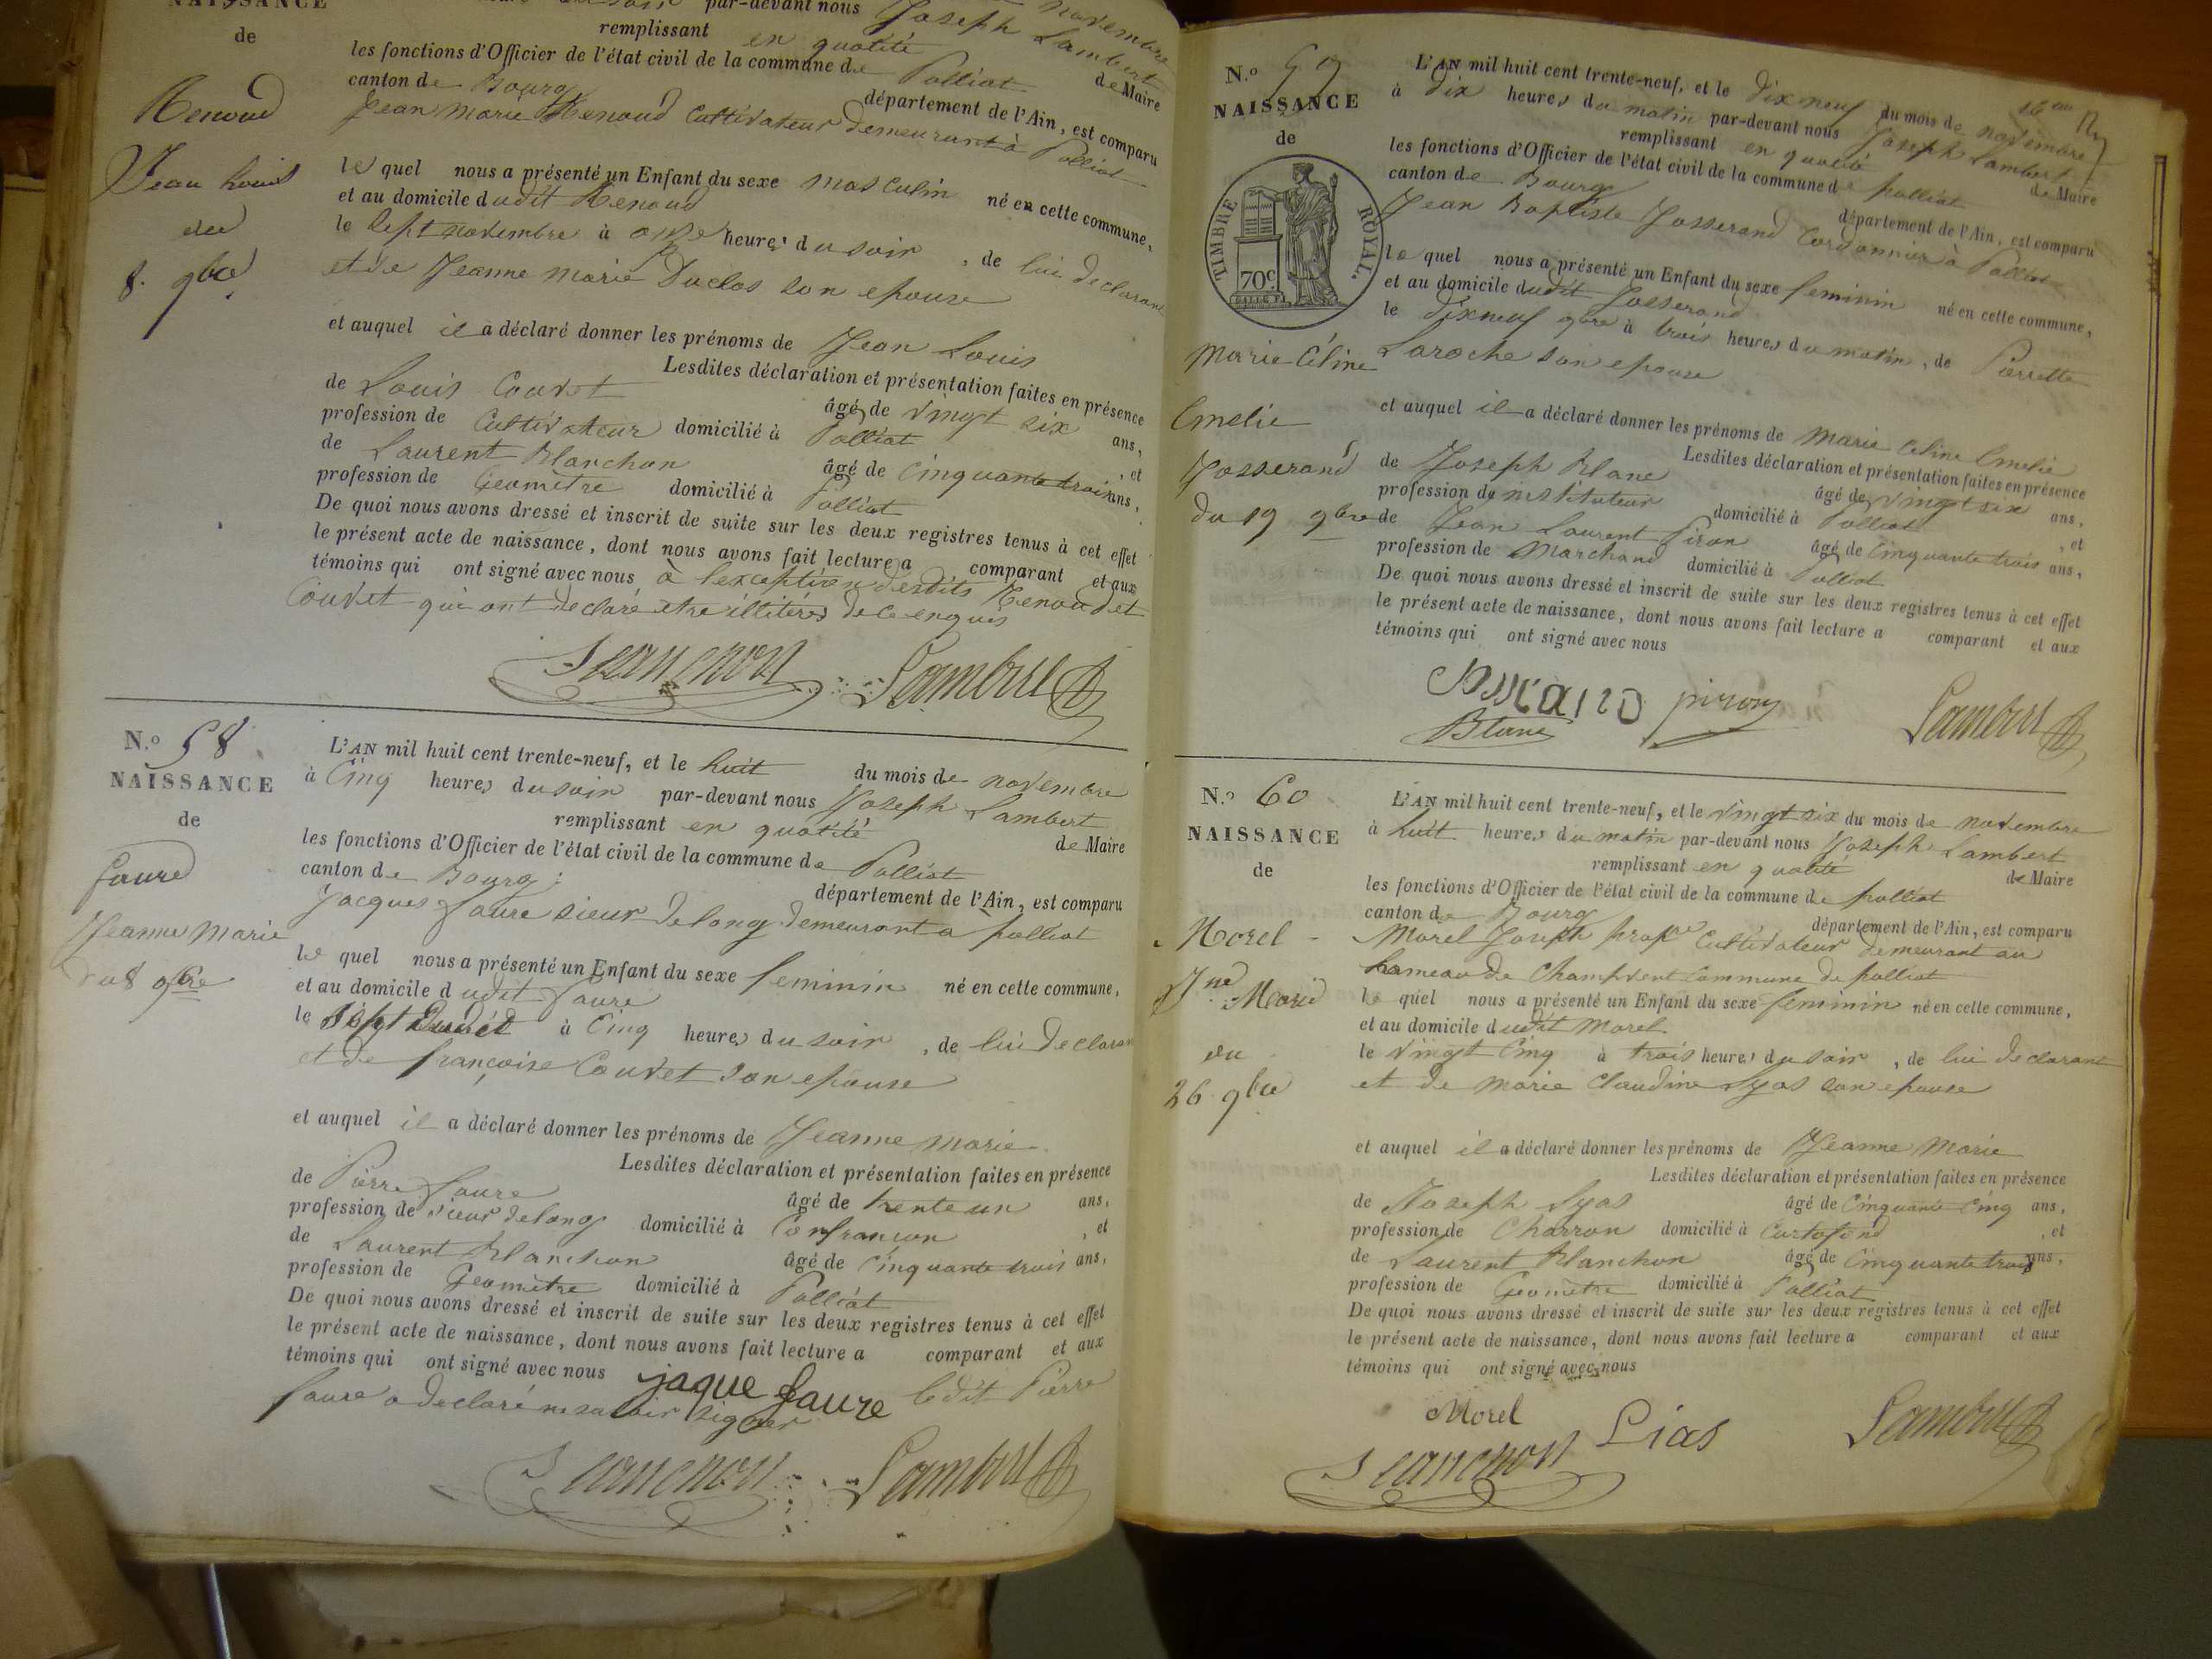 NAISSANCE
de
Renoud
Jean Louis
du
8. 9bre
par-devant nous Joseph Lambert
novembre
remplissant en qualité de Maire
les fonctions d'Officier de l'état civil de la commune de Polliat
canton de Bourg département de l'Ain, est comparu
Jean Marie Renoud Cultivateur demeurant à Polliat
le quel nous a présenté un Enfant du sexe masculin né en cette commune,
et au domicile dudit Renoud
le Sept novembre à onze heures du soir, de lui declarant
et de Jeanne Marie Duclos son epouse
et auquel il a déclaré donner les prénoms de Jean Louis
Lesdites déclaration et présentation faites en présence
de Louis Couvet âgé de vingt six ans,
profession de Cultivateur domicilié à Polliat, et
de Laurent Blanchon âgé de Cinquante trois ans,
profession de Geomètre domicilié à Polliat
De quoi nous avons dressé et inscrit de suite sur les deux registres tenus à cet effet
le présent acte de naissance, dont nous avons fait lecture a comparant et aux
témoins qui ont signé avec nous à l'exception desdits Renoud et
Couvet qui ont declaré etre illitérés de ce enquis
Lambert
N.o 58
NAISSANCE
de
faure
Jeanne Marie
du 8 9bre
L'AN mil huit cent trente-neuf, et le huit du mois de novembre
à Cinq heures du soir par-devant nous Joseph Lambert
remplissant en qualité de Maire
les fonctions d'Officier de l'état civil de la commune de Polliat
canton de Bourg département de l'Ain, est comparu
Jacques faure sieur de long demeurant a polliat
le quel nous a présenté un Enfant du sexe feminin né en cette commune,
et au domicile dudit faure
le Sept dudit à Cinq heures du soir, de lui declarant
et de françoise Couvet son epouse
et auquel il a déclaré donner les prénoms de Jeanne marie
Lesdites déclaration et présentation faites en présence
de Pierre faure âgé de trente un ans,
profession de sieur de long domicilié à Confrancon, et
de Laurent Blanchon âgé de Cinquante trois ans,
profession de Geomètre domicilié à Polliat
De quoi nous avons dressé et inscrit de suite sur les deux registres tenus à cet effet
le présent acte de naissance, dont nous avons fait lecture a comparant et aux
témoins qui ont signé avec nous jaque faure ledit Pierre
faure a declaré ne savoir signer
Lambert
N.o 59
NAISSANCE
de
TIMBRE ROYAL.
70c.
Marie Céline
Emelie
Josserand
du 19 9bre
L'AN mil huit cent trente-neuf, et le dix neuf du mois de novembre
à dix heures du matin par-devant nous Joseph Lambert
remplissant en qualité de Maire
les fonctions d'Officier de l'état civil de la commune de polliat
canton de Bourg département de l'Ain, est comparu
Jean Baptiste Josserand Cordonnier à Polliat
le quel nous a présenté un Enfant du sexe feminin né en cette commune,
et au domicile dudit Josserand
le dixneuf 9bre à trois heures du matin, de Pierrette
Laroche son epouse
et auquel il a déclaré donner les prénoms de Marie Celine Emelie
Lesdites déclaration et présentation faites en présence
de Joseph Blanc âgé de vingt six ans,
profession d'instituteur domicilié à Polliat, et
de Jean Laurent Piron âgé de Cinquante trois ans,
profession de Marchand domicilié à Polliat
De quoi nous avons dressé et inscrit de suite sur les deux registres tenus à cet effet
le présent acte de naissance, dont nous avons fait lecture a comparant et aux
témoins qui ont signé avec nous
piron
Blanc
Lambert
N.o 60
NAISSANCE
de
Morel
Jne Marie
du
26 9bre
L'AN mil huit cent trente-neuf, et le vingt six du mois de novembre
à huit heures du matin par-devant nous Joseph Lambert
remplissant en qualité de Maire
les fonctions d'Officier de l'état civil de la commune de polliat
canton de Bourg département de l'Ain, est comparu
Morel Joseph propre Cultivateur demeurant au
hameau de Champvent Commune de polliat
le quel nous a présenté un Enfant du sexe feminin né en cette commune,
et au domicile dudit Morel
le vingt Cinq à trois heures du soir, de lui declarant
et de Marie Claudine Lyas son epouse
et auquel il a déclaré donner les prénoms de Jeanne Marie
Lesdites déclaration et présentation faites en présence
de Joseph Lyas âgé de Cinquante Cinq ans,
profession de Charron domicilié à Curtafond, et
de Laurent Blanchon âgé de Cinquante trois ans,
profession de Geomètre domicilié à Polliat
De quoi nous avons dressé et inscrit de suite sur les deux registres tenus à cet effet
le présent acte de naissance, dont nous avons fait lecture a comparant et aux
témoins qui ont signé avec nous
Morel
Lias
Lambert